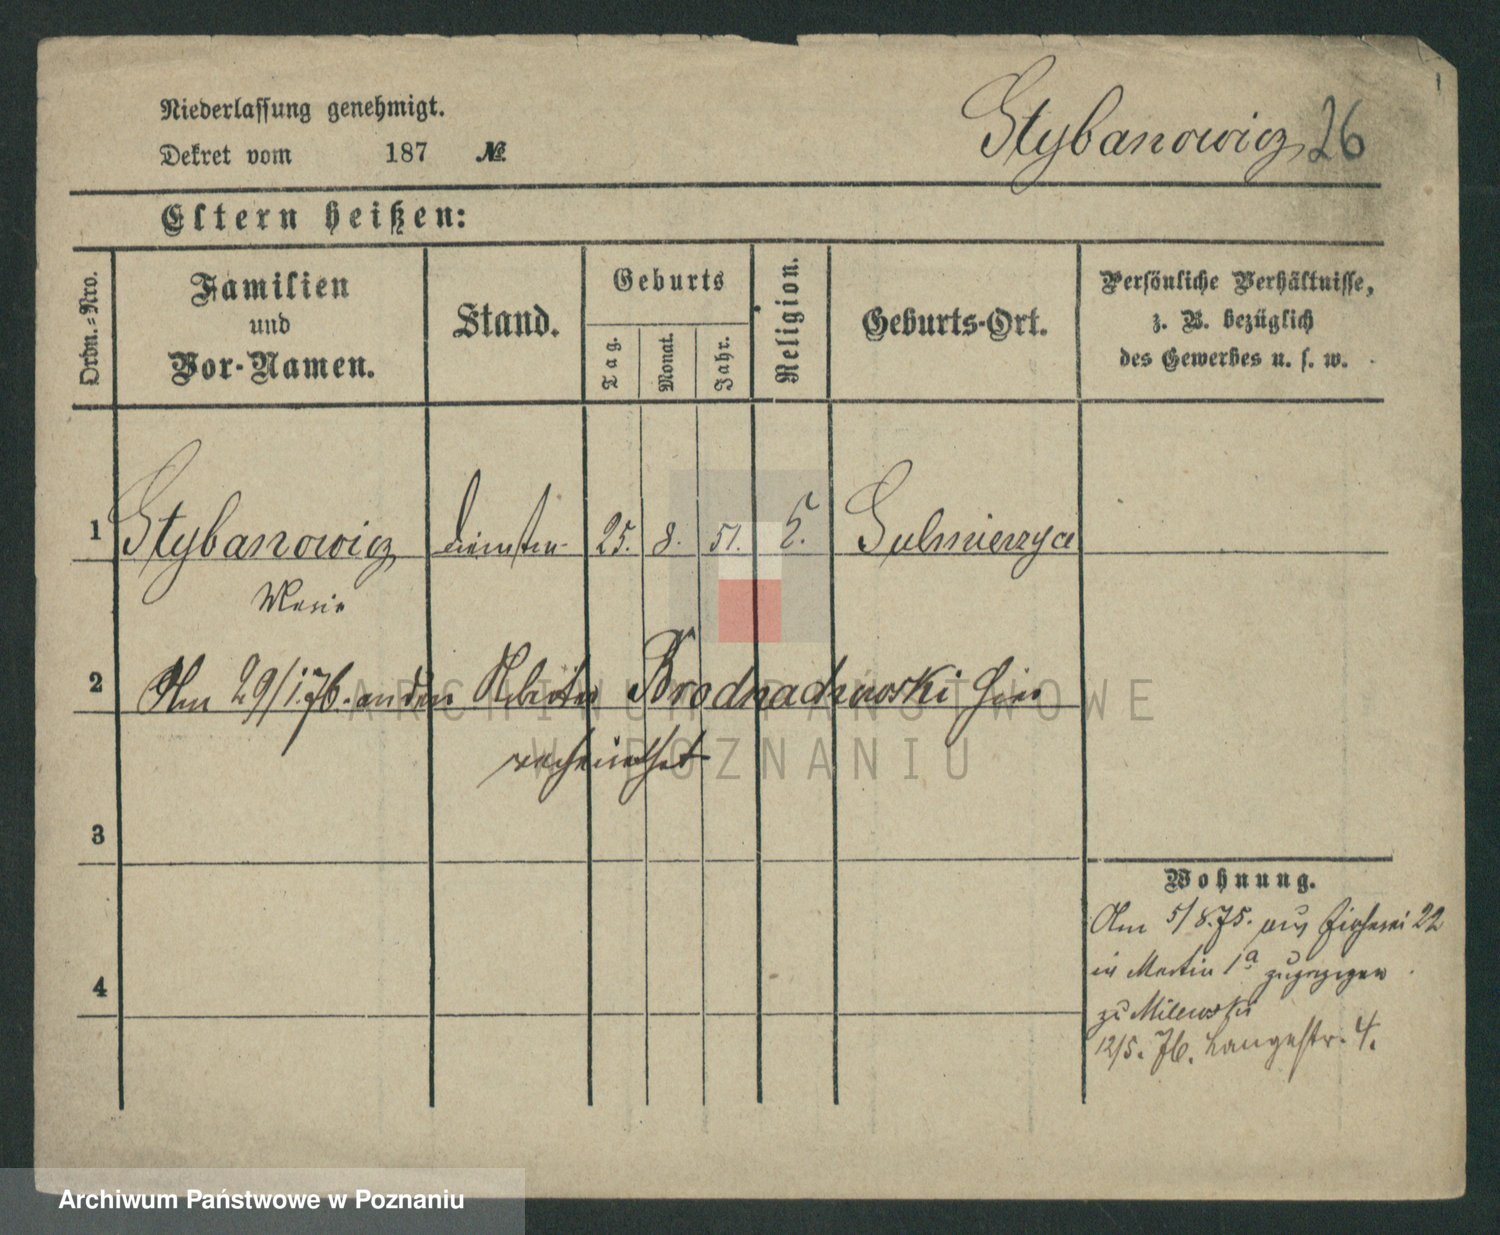 Niederlassung genehmigt.
Stybanowicz 26
Dekret vom 187 №
Eltern heißen:
Ordn.-Nro.
Familien
und
Vor-Namen.
Stand.
Geburts
Tag.
Monat.
Jahr.
Religion.
Geburts-Ort.
Persönliche Verhältnisse,
z. B. bezüglich
des Gewerbes u. s. w.
1 Stybanowicz 25. 8. 51. Sulmierzyce
Marie
2 Am 29/1.76. an den Arbeiter hier
verheirathet
3
Wohnung.
Am 5/8.75. aus Fischerei 22
in Martin 1a zugezogen
zu Milewski
12/5. 76. Langestr. 4.
4
ARCHIWUM PAŃSTWOWE
W POZNANIU
Archiwum Państwowe w Poznaniu